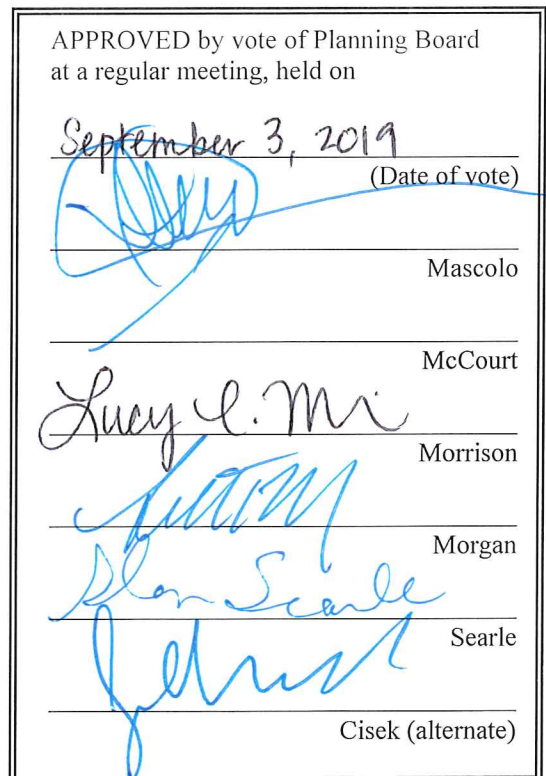 APPROVED by vote of Planning Board
at a regular meeting, held on
September 3, 2019
(Date of vote)
Mascolo
McCourt
Lucy
Morrison
Morgan
Alan Searle
Searle
Cisek (alternate)